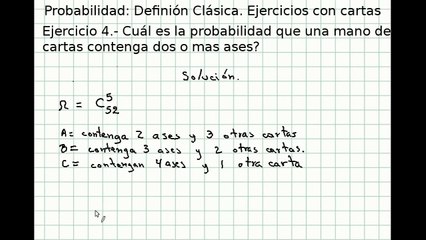 Probabilidad: Definión Clásica. Ejercicios con cartas
Ejercicio 4.- Cuál es la probabilidad que una mano de
cartas contenga dos o mas ases?
Solución.
Ω = C⁵₅₂
A= contenga 2 ases y 3 otras cartas
B= contenga 3 ases y 2 otras cartas.
C= contengan 4 ases y 1 otra carta